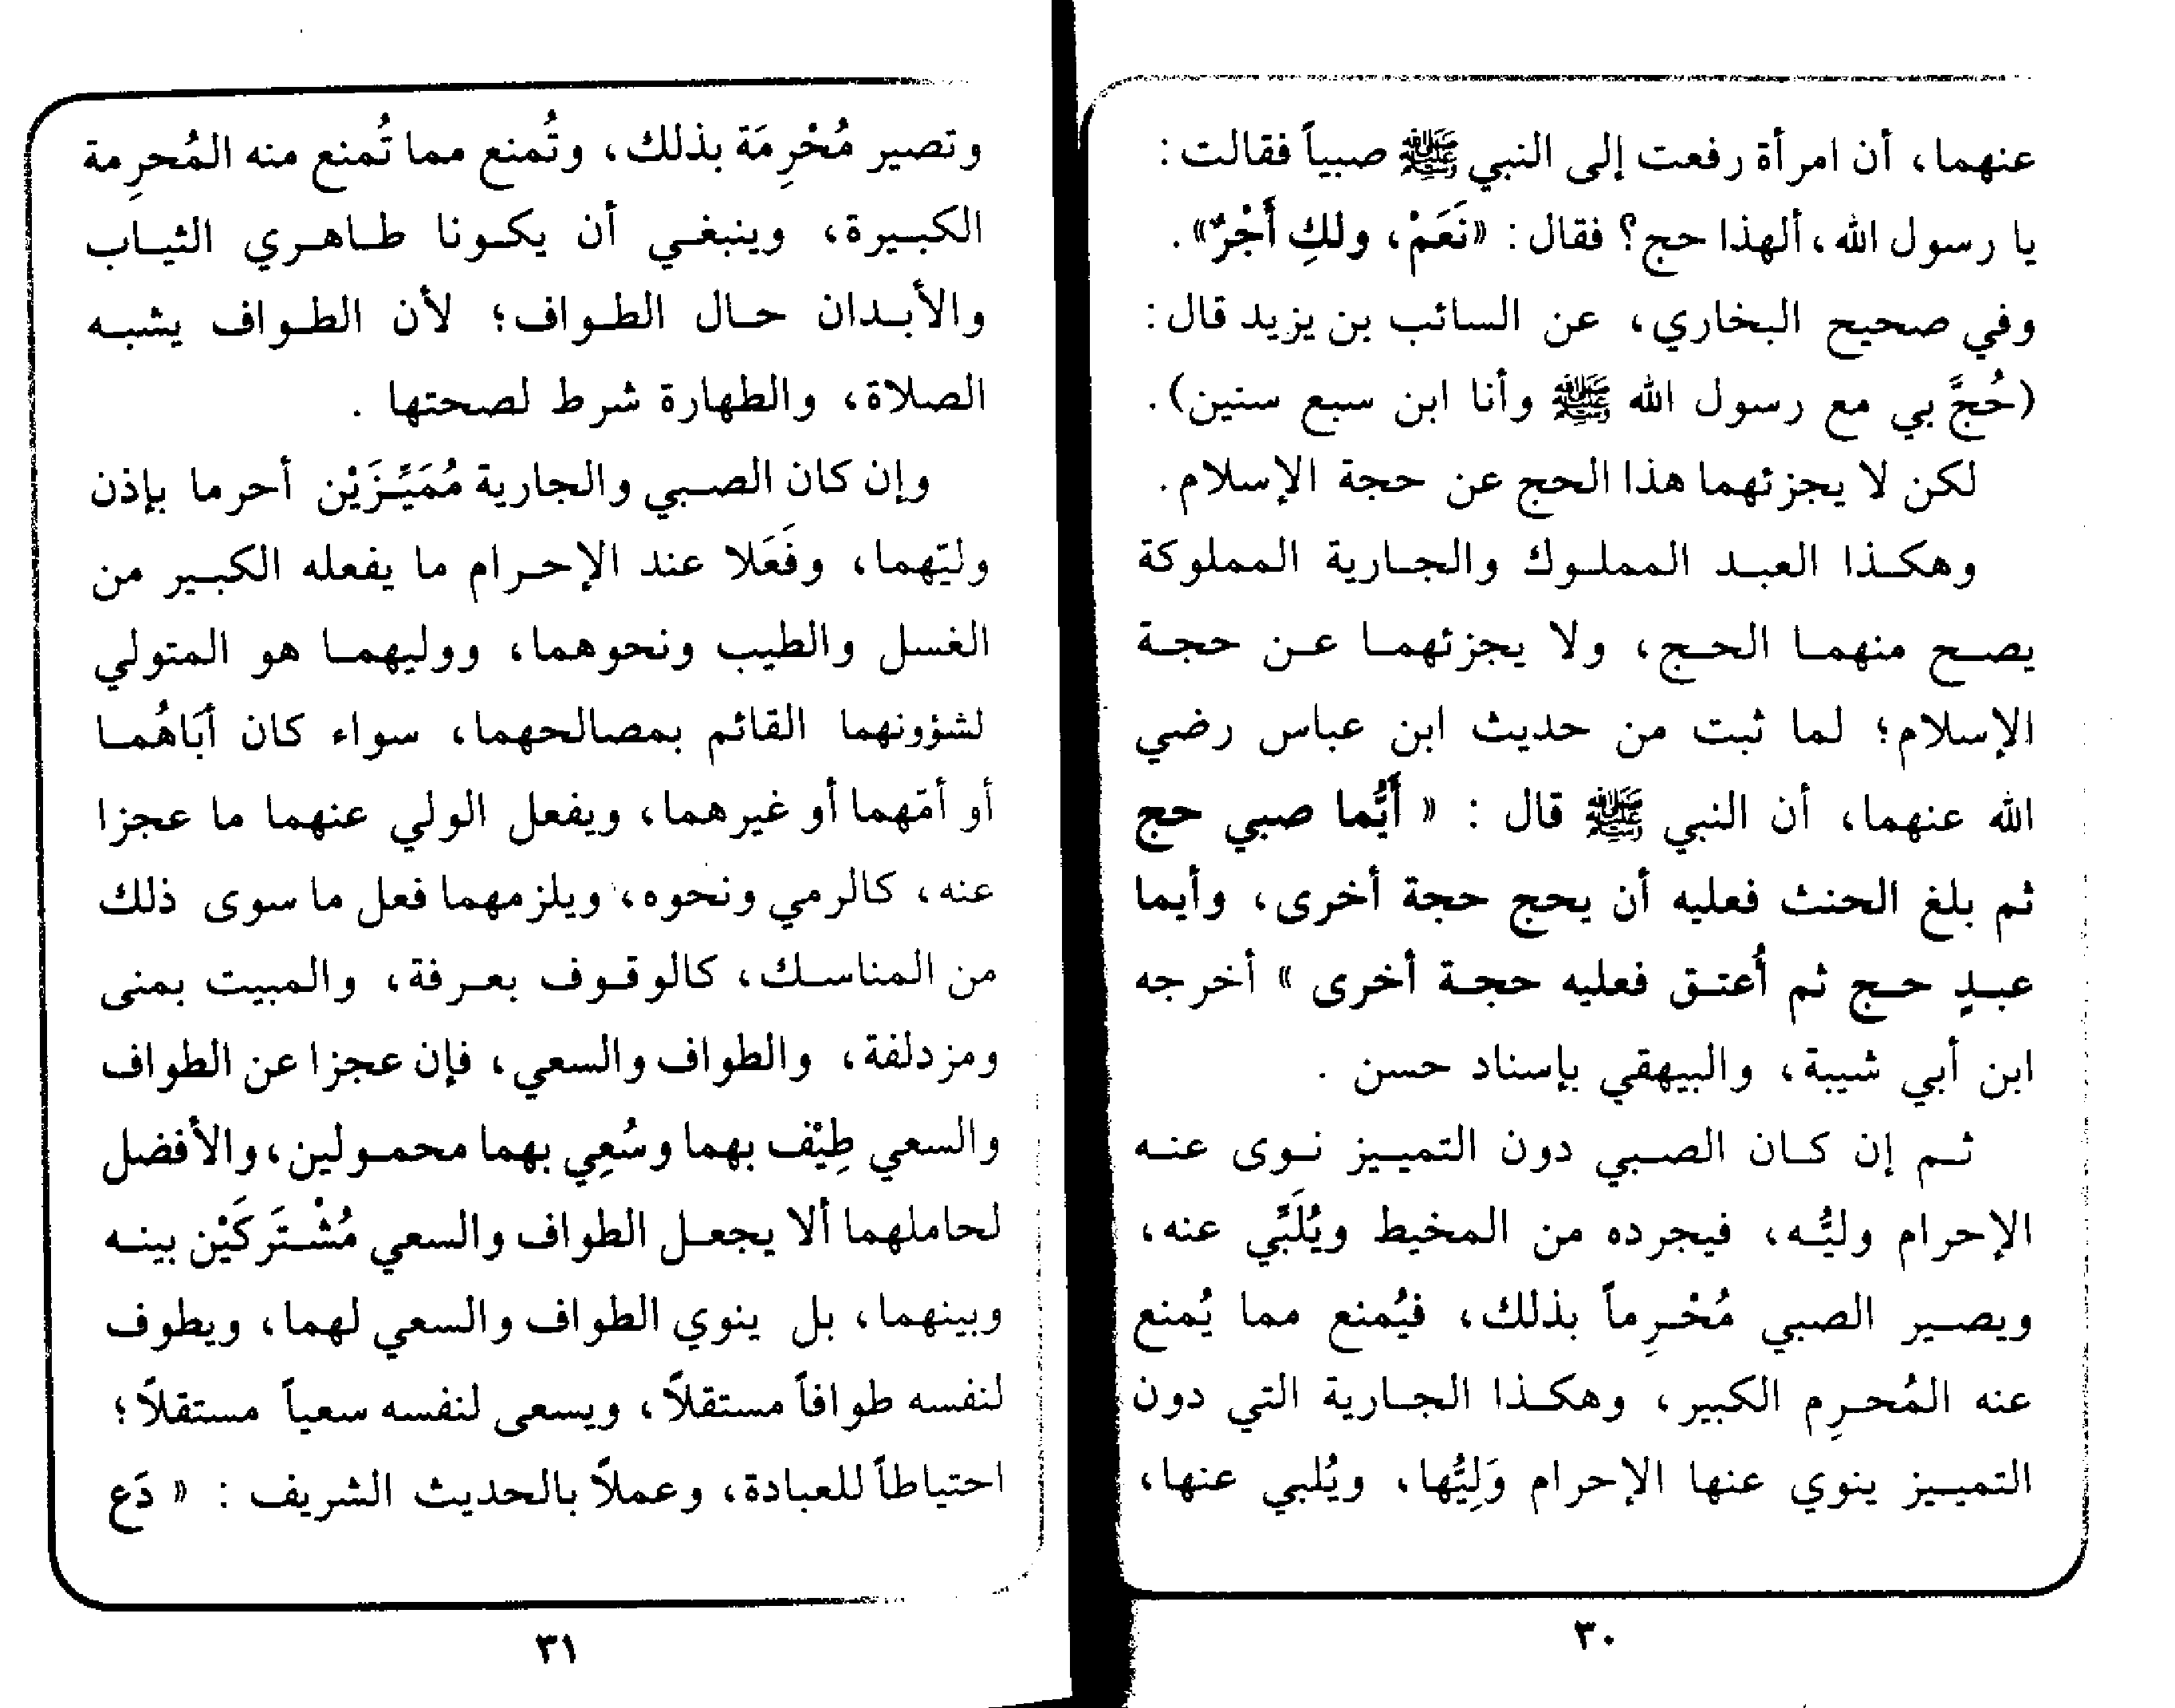 عنهما، أن امرأة رفعت إلى النبي ﷺ صبياً فقالت:
يا رسول الله، ألهذا حج؟ فقال: «نَعَمْ، ولكِ أَجْرٌ».
وفي صحيح البخاري، عن السائب بن يزيد قال:
(حُجَّ بي مع رسول الله ﷺ وأنا ابن سبع سنين).
لكن لا يجزئهما هذا الحج عن حجة الإسلام.
وهكـذا العبـد المملـوك والجـارية المملوكة
يصـح منهمـا الحـج، ولا يجزئهمـا عـن حجـة
الإسلام؛ لما ثبت من حديث ابن عباس رضي
الله عنهما، أن النبي ﷺ قال : « أَيُّما صبي حج
ثم بلغ الحنث فعليه أن يحج حجة أخرى، وأيما
عبـدٍ حـج ثم أُعتـق فعليه حجـة أخرى » أخرجه
ابن أبي شيبة، والبيهقي بإسناد حسن .
ثـم إن كـان الصـبي دون التميـيز نـوى عنـه
الإحرام وليُّـه، فيجرده من المخيط ويُلَبِّي عنه،
ويصـير الصبي مُحْـرِماً بذلك، فيُمنع مما يُمنع
عنه المُحـرِم الكبير، وهكـذا الجـارية التي دون
التميـيز ينوي عنها الإحرام وَلِيُّها، ويُلبي عنها،
٣٠
وتصير مُحْرِمَة بذلك، وتُمنع مما تُمنع منه المُحرِمة
الكبـيرة، وينبغـي أن يكـونا طـاهـري الثيـاب
والأبـدان حـال الطـواف؛ لأن الطـواف يشبـه
الصلاة، والطهارة شرط لصحتها .
وإن كان الصـبي والجارية مُمَيِّـزَيْن أحرما بإذن
وليّهما، وفَعَلا عند الإحـرام ما يفعله الكبـير من
الغسل والطيب ونحوهما، ووليهمـا هو المتولي
لشؤونهما القائم بمصالحهما، سواء كان أبَاهُمـا
أو أمّهما أو غيرهما، ويفعل الولي عنهما ما عجزا
عنه، كالرمي ونحوه، ويلزمهما فعل ما سوى ذلك
من المناسـك، كالوقـوف بعـرفة، والمبيت بمنى
ومزدلفة، والطواف والسعي، فإن عجزا عن الطواف
والسعي طِيْف بهما وسُعِي بهما محمـولين، والأفضل
لحاملهما ألا يجعـل الطواف والسعي مُشْـتَركَيْن بينـه
وبينهما، بل ينوي الطواف والسعي لهما، ويطوف
لنفسه طوافاً مستقلاً، ويسعى لنفسه سعياً مستقلاً؛
احتياطاً للعبادة، وعملاً بالحديث الشريف : « دَع
٣١